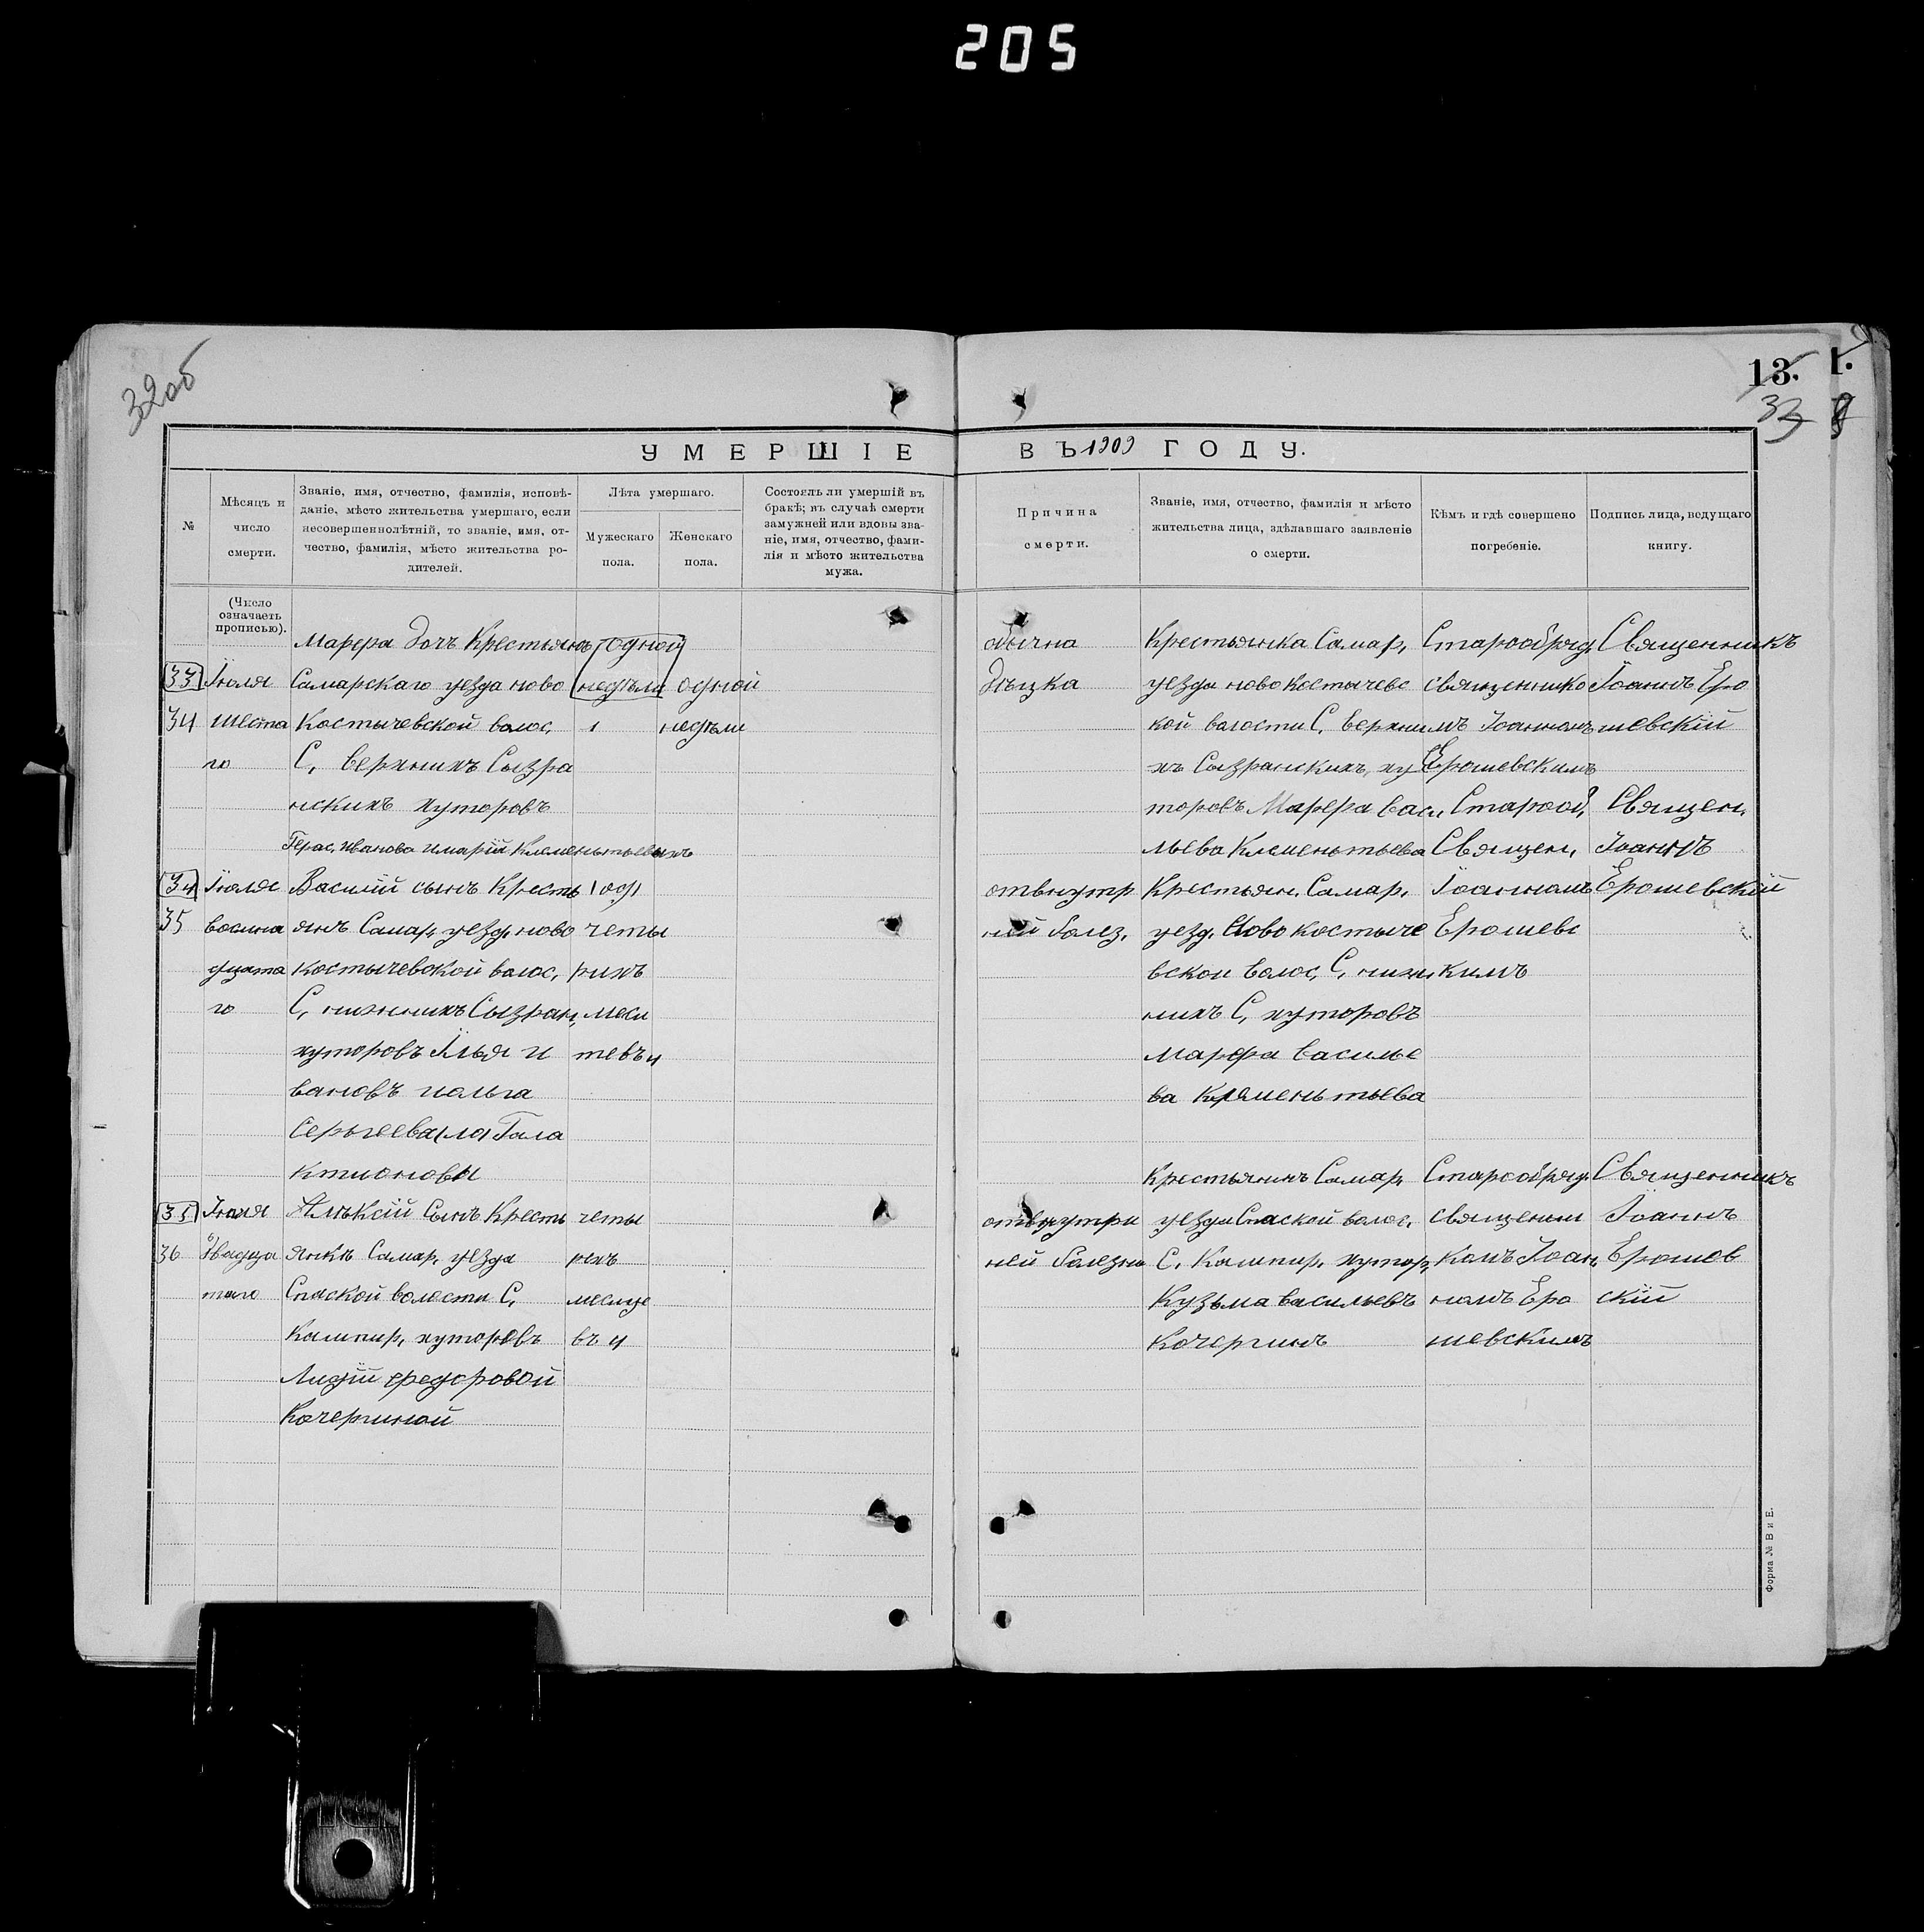 205
32об
13.
1.
33
УМЕРШІЕ
ВЪ 1909 ГОДУ.
№
Мѣсяцъ и
число
смерти.
Званіе, имя, отчество, фамилія, исповѣ-
даніе, мѣсто жительства умершаго, если
несовершеннолѣтній, то званіе, имя, от-
чество, фамилія, мѣсто жительства ро-
дителей.
Лѣта умершаго.
Мужескаго
пола.
Женскаго
пола.
Состоялъ ли умершій въ
бракѣ; въ случаѣ смерти
замужней или вдовы зва-
ніе, имя, отчество, фами-
лія и мѣсто жительства
мужа.
Причина
смерти.
Званіе, имя, отчество, фамилія и мѣсто
жительства лица, здѣлавшаго заявленіе
о смерти.
Кѣмъ и гдѣ совершено
погребеніе.
Подпись лица, ведущаго
книгу.
(Число
означаетъ
прописью).
33
34
Іюля
шеста
го
Марфа дочь Крестьянъ
Самарскаго уезда ново
Костычевской волос,
С, верхнихъ Сызра
нскихъ хуторовъ
Герас, иванова имаріи Клементьевыхъ
одной
недѣли
1
одной
недѣли
обычна
дѣцка
Крестьянка Самар,
уезда новокостычевс
кой волости С, верхни
хъ Сызранскихъ, ху
торовъ Марфа васи,
льева Клементьева
Старообряд,
священнико
мъ Іоанномъ
Ерошевскимъ
Священникъ
Іоаннъ Еро
шевскій
34
35
Іюля
восмна
дцата
го
Василій сынъ Кресть
янъ Самар, уезд, ново
костычевской волос,
С, нижнихъ Сызран,
хуторовъ Илья и
вановъ иольга
Сергеева(ло) Гала
ктионовы
1 од,
четы
рихъ
меся
цевъ 4
отвнутр
ней болез,
Крестьян. Самар,
уезд, Ново костыче
вской волос, С, нижн
нихъ С, хуторовъ
марфа василье
ва Клементьева
Старооб,
Священ,
Іоанномъ
Ерошевс
кимъ
Священ,
Іоаннъ
Ерошевскій
35
36
Іюля
двадца
таго
Алѣксій Сынъ Кресть
янкъ Самар, уезда
Спаской волости С,
Кашпир, хуторовъ
Лидіи федоровой
Кочергиной
четы
рехъ
месяце
въ 4
отвнутри
ней болезни
Крестьянинъ Самар,
уезда Спаской волос,
С, Кашпир. хутор,
Кузьма васильевъ
Кочергинъ
Старообряд,
священни
комъ Іоан,
номъ Еро
шевскимъ
Священникъ
Іоаннъ
Ерошов
скій
Форма № В и Е.